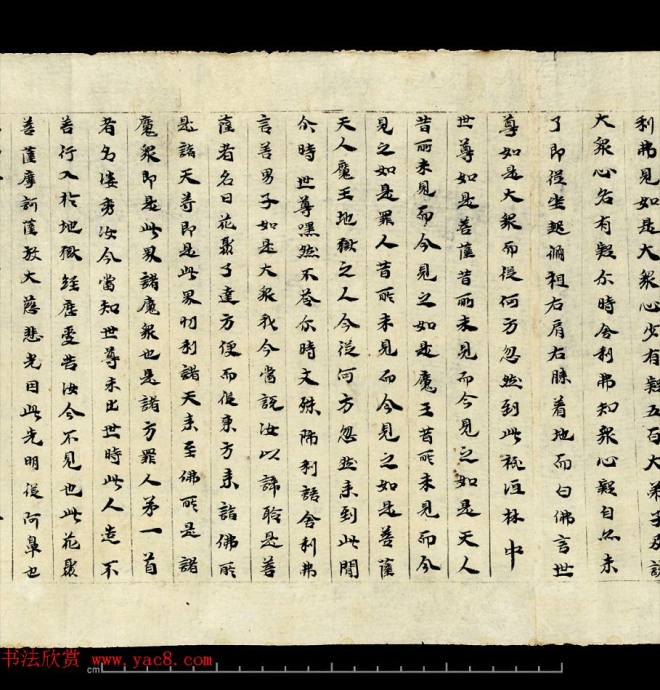 利弗見如是大衆心少有疑五百大弟子及諸
大衆心名有疑尒時舍利弗知衆心疑自亦未
了即從坐起偏袒右肩右膝着地而白佛言世
尊如是大衆而從何方忽然到此祇洹林中
世尊如是菩薩昔所未見而今見之如是天人
昔所未見而今見之如是魔王昔所未見而今
見之如是罪人昔所未見而今見之如是菩薩
天人魔王地獄之人今從何方忽然来到此間
尒時世尊嘿然不荅尒時文殊師利語舍利弗
言善男子如是大衆我今當說汝以諦聆是菩
薩者名曰花聚了達方便而從東方来詣佛所
是諸天等即是此界忉利諸天来至佛所是諸
魔衆即是此界諸魔衆也是諸方罪人弟一首
者名婆秀汝今當知世尊未出世時此人造不
善行入於地獄經歷受苦汝今不見也此花聚
菩薩摩訶薩放大慈悲光因此光明從阿鼻也
书法欣赏 www.yac8.com
cm